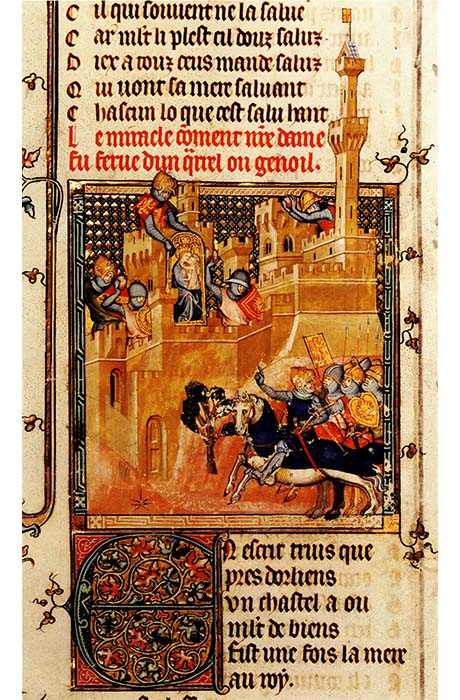 C il qui souuent ne la salue
C ar mlt li plest cil douz saluz.
D iex a touz ceus mande saluz
Q ui uont sa mere saluant
C hascun lo que cest salu hant
L e miracle cōment nr̄e dame
fu ferue dun qrrel ou genoil.
EN escrit truis que
pres dorliens
vn chastel a ou
mlt de biens
fist une fois la mere
au roy.